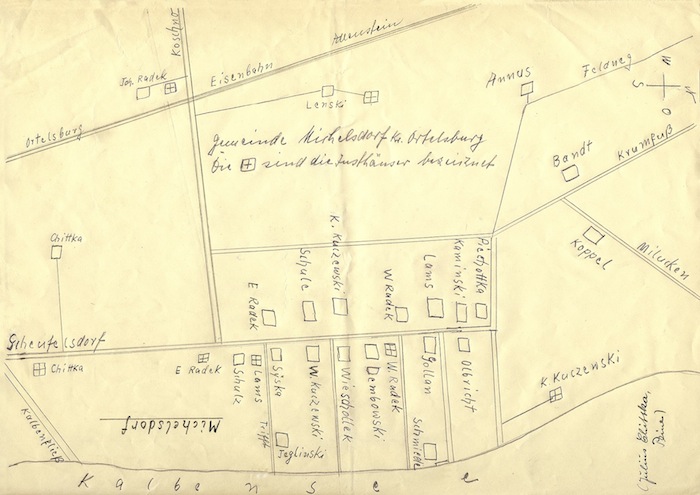 Koschno
Allenstein
Eisenbahn
Ortelsburg
Joh. Radek
Lenski
Annus
Feldweg
N
W
S
O
Gemeinde Michelsdorf Kr. Ortelsburg
Die ⊞ sind die Insthäuser bezeichnet
Bandt
Krumfuß
Koppel
Milucken
Chittka
E Radek
Schule
K. Kuczewski
W Radek
Lams
Kaminski
Piechottka
Scheufelsdorf
Chittka
E Radek
Schulz
Lams
Syska
W Kuczewski
Wieschollek
Dembowski
W. Radek
Gollan
Olbricht
K Kuszenski
Kalbenfließ
Michelsdorf
Trifft
Jeglinski
Schmiede
Kalbensee
(Julius Chittka,